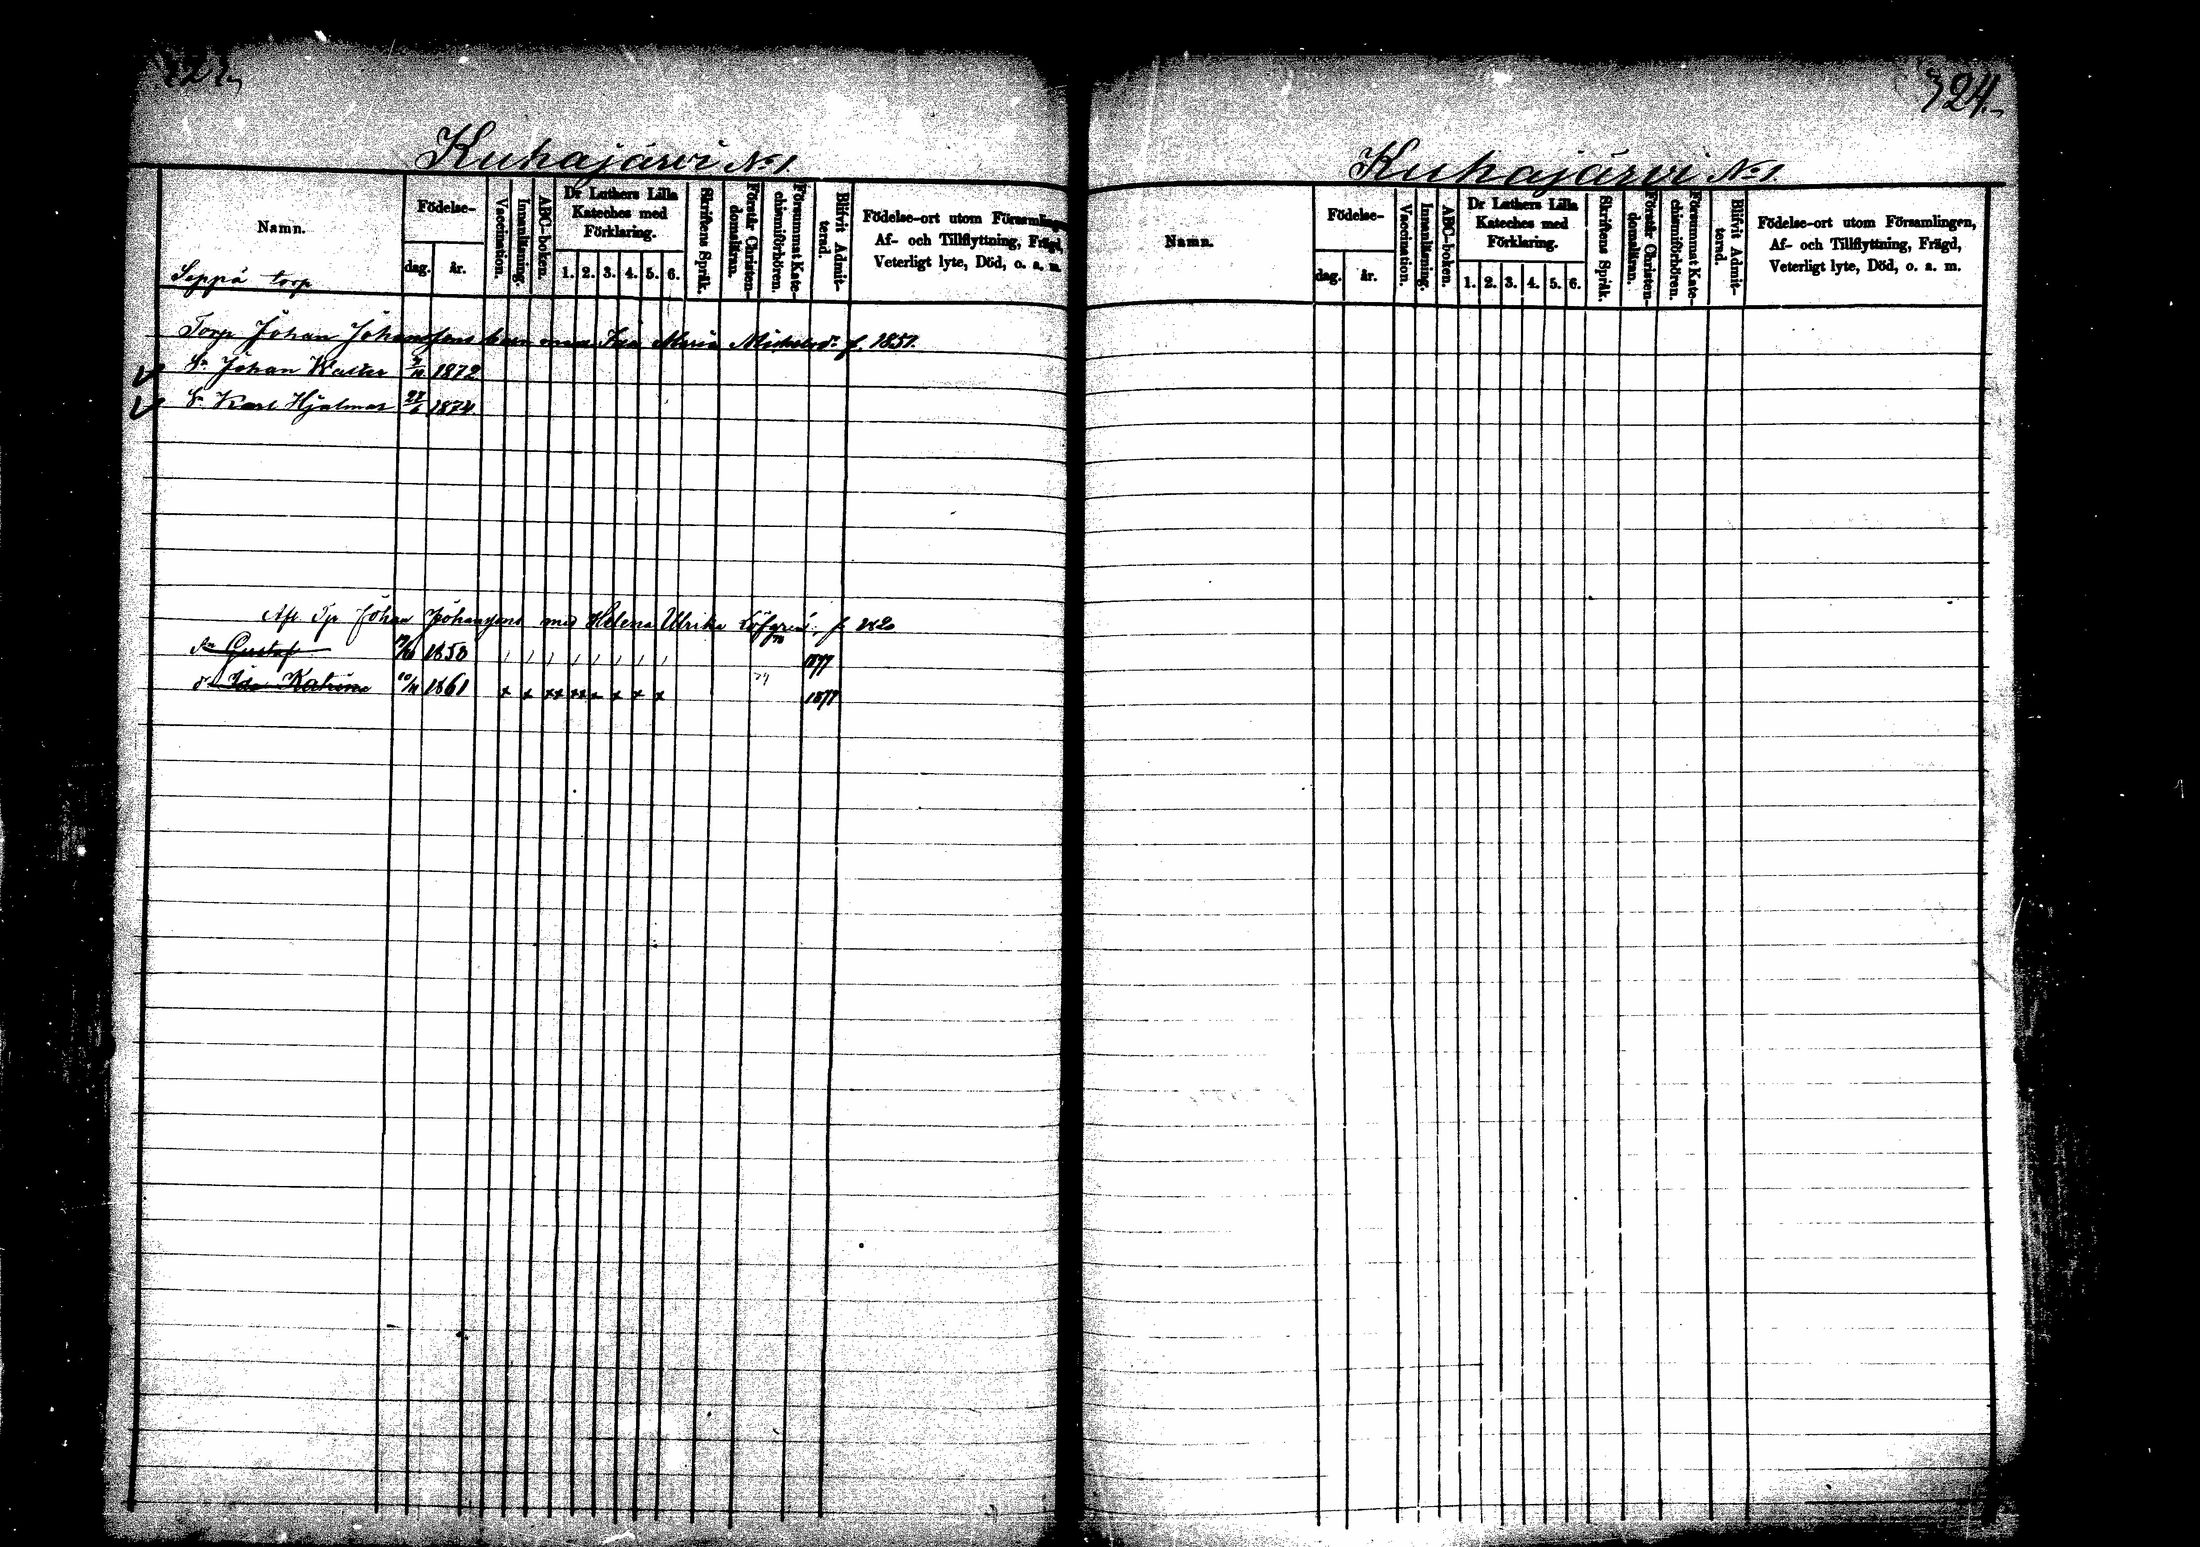 Kuhajärvi No 1.
Namn.
Födelse-
dag.
år.
Vaccination.
Innanläsning.
ABC-boken.
Dr Luthers Lilla
Kateches med
Förklaring.
1. 2. 3. 4. 5. 6.
Skriftens Språk.
Förstår Christen-
domsläran.
Försummat Kate-
chismiförhören.
Blifvit Admit-
terad.
Födelse-ort utom Församlingen
Af- och Tillflyttning, Frägd,
Veterligt lyte, Död, o. a. m.
Seppä torp
Torp Johan Johanssons barn med Ida Maria f. 1851.
Sn Johan 1872
Sn Karl Hjalmar 27/6 1874.
Afl. Tp Johan Johanssons med Helena Ulrika Löfgren f. 1820
sn Gustaf 1858 1877
dr Ida Katrina 10/11 1861 x x xx xx x x x x 1877
324.
Kuhajärvi No 1.
Namn.
Födelse-
dag.
år.
Vaccination.
Innanläsning.
ABC-boken.
Dr Luthers Lilla
Kateches med
Förklaring.
1. 2. 3. 4. 5. 6.
Skriftens Språk.
Förstår Christen-
domsläran.
Försummat Kate-
chismiförhören.
Blifvit Admit-
terad.
Födelse-ort utom Församlingen,
Af- och Tillflyttning, Frägd,
Veterligt lyte, Död, o. a. m.